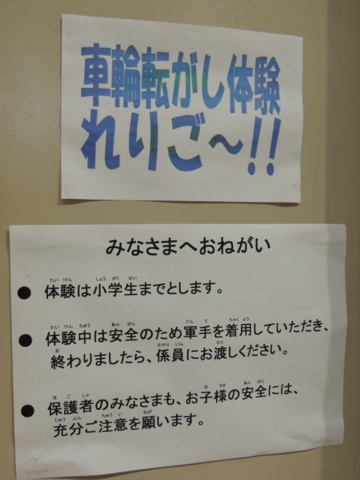 車輪転がし体験
れりご～!!
みなさまへおねがい
● 体験は小学生までとします。
● 体験中は安全のため軍手を着用していただき、
終わりましたら、係員にお渡しください。
● 保護者のみなさまも、お子様の安全には、
充分ご注意を願います。